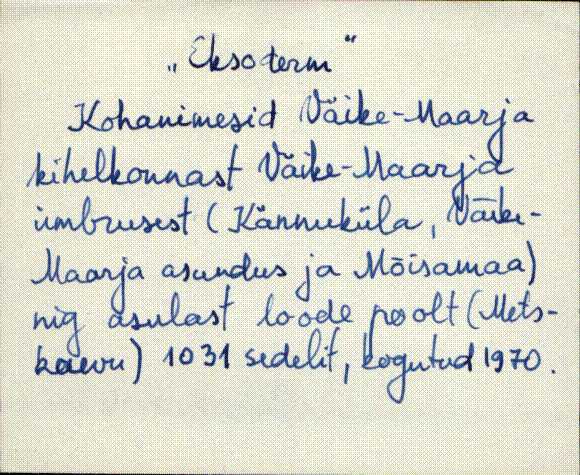 „Eksoterm“
Kohanimesid Väike-Maarja
kihelkonnast Väike-Maarja
ümbrusest (Kännuküla, Väike-
Maarja asundus ja Mõisamaa)
nig asulast loode poolt (Mets-
kaevu) 1031 sedelit, kogutud 1970.